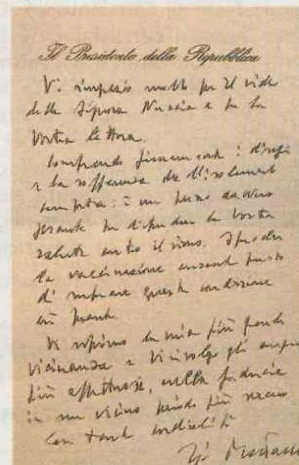 Il Presidente della Repubblica
Vi ringrazio molto per il video
della Signora Nuccia e per la
Vostra lettera.
Comprendo sinceramente i disagi
e la sofferenza che l'isolamento
comporta: è un peso davvero
pesante per difendere la vostra
salute contro il virus. Spero che
la vaccinazione consenta presto
di superare questa condizione
così pesante.
Vi esprimo la mia più grande
vicinanza e Vi rivolgo gli auguri
più affettuosi, nella fiducia
in un vicino periodo più sereno
Con tanta cordialità